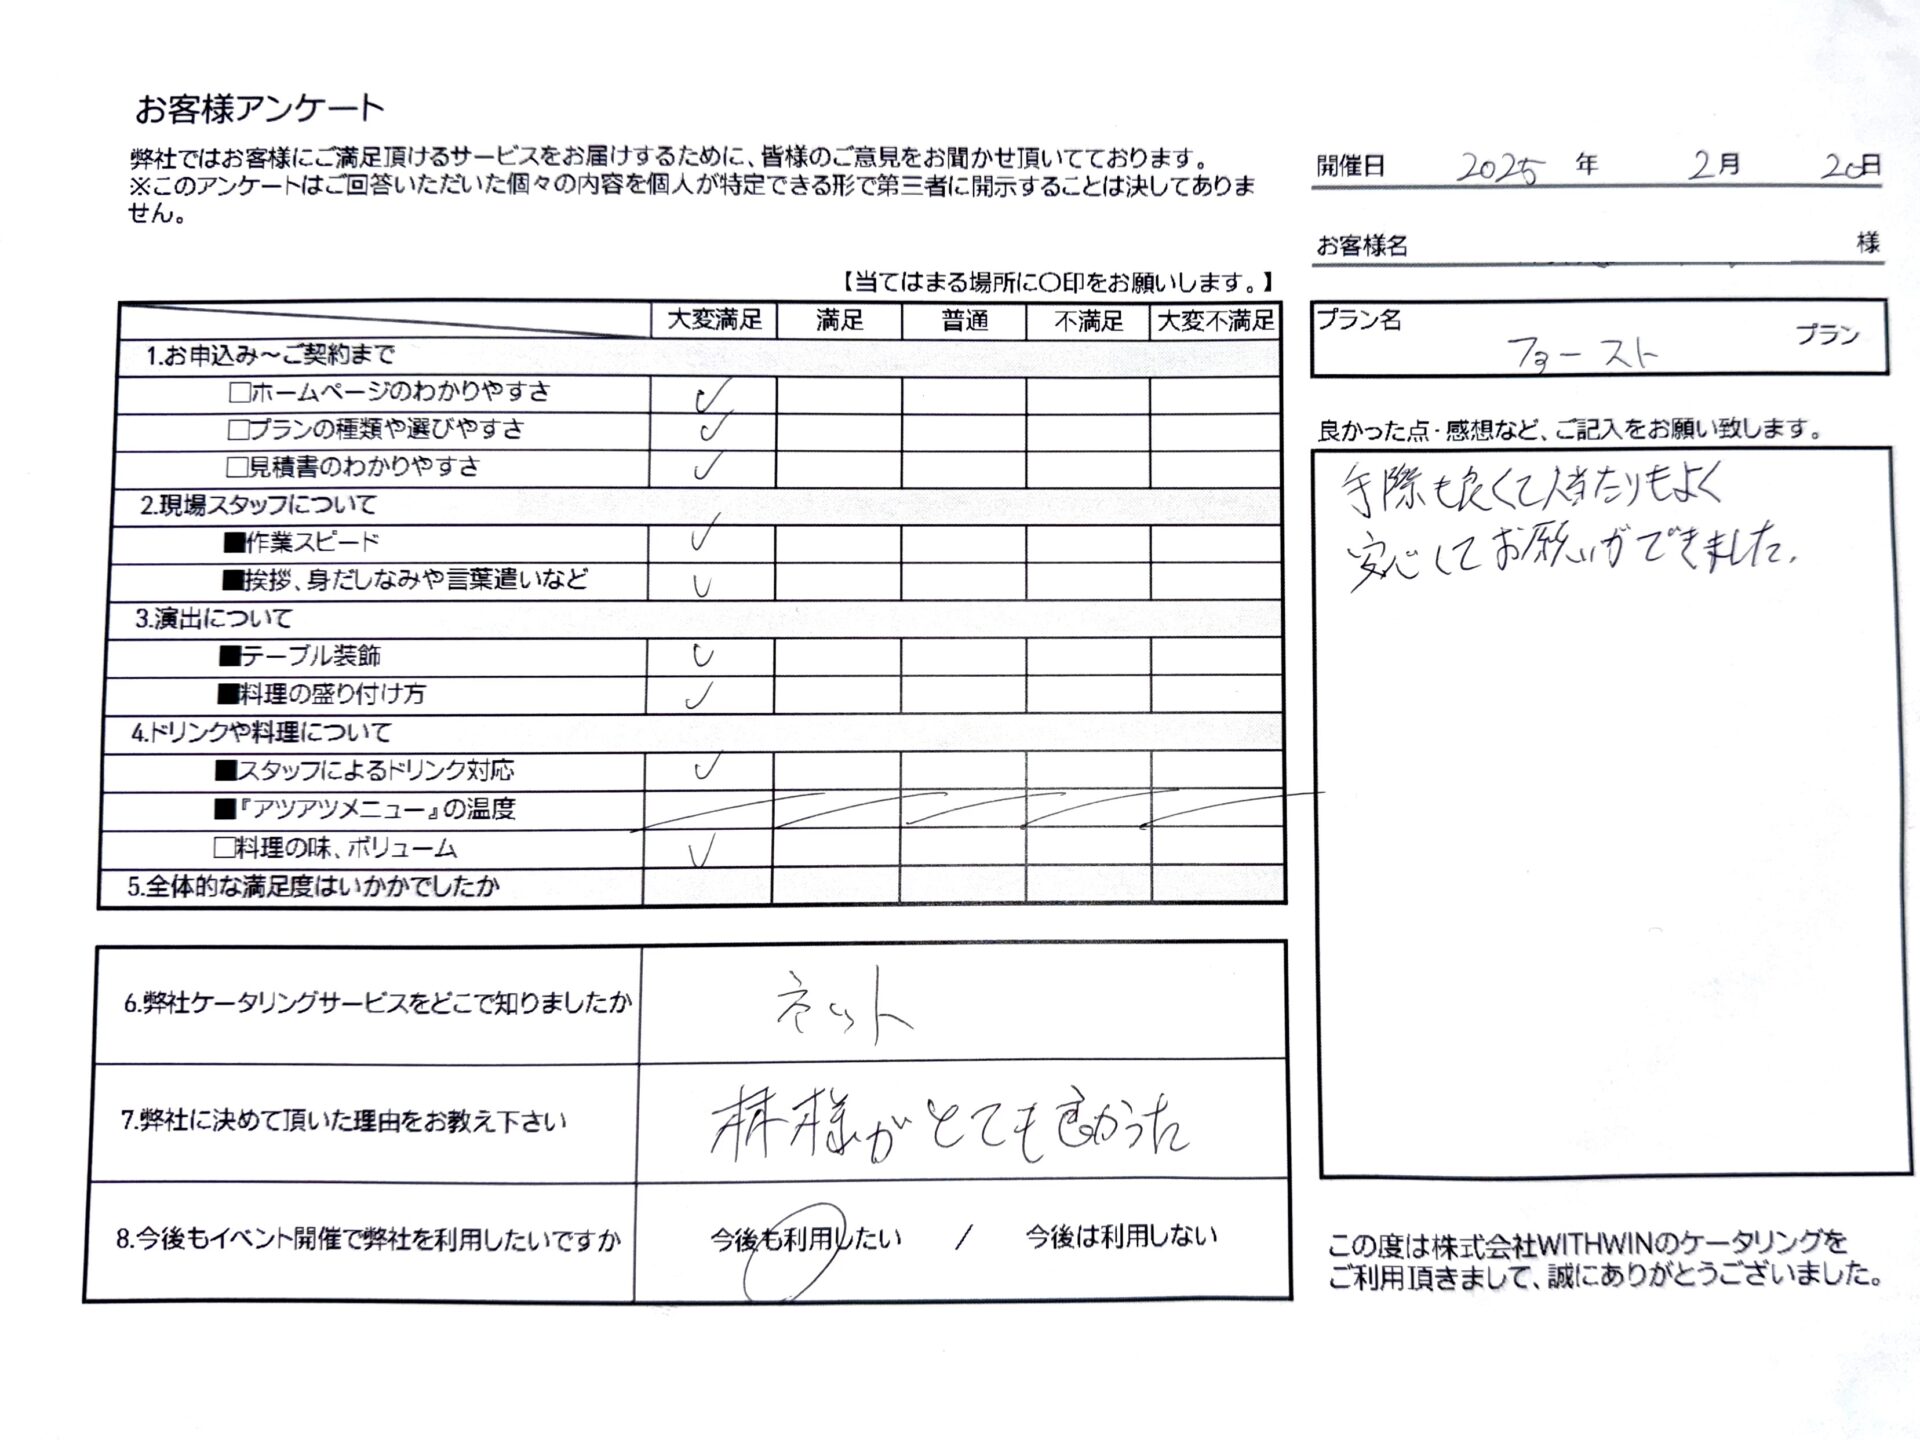 お客様アンケート
弊社ではお客様にご満足頂けるサービスをお届けするために、皆様のご意見をお聞かせ頂いてております。
※このアンケートはご回答いただいた個々の内容を個人が特定できる形で第三者に開示することは決してありま
せん。
開催日 2025 年 2月 20日
お客様名 様
【当てはまる場所に〇印をお願いします。】
大変満足 満足 普通 不満足 大変不満足
1.お申込み～ご契約まで
□ホームページのわかりやすさ ✓
□プランの種類や選びやすさ ✓
□見積書のわかりやすさ ✓
2.現場スタッフについて
■作業スピード ✓
■挨拶、身だしなみや言葉遣いなど ✓
3.演出について
■テーブル装飾 ✓
■料理の盛り付け方 ✓
4.ドリンクや料理について
■スタッフによるドリンク対応 ✓
■『アツアツメニュー』の温度
□料理の味、ボリューム ✓
5.全体的な満足度はいかかでしたか
6.弊社ケータリングサービスをどこで知りましたか ネット
7.弊社に決めて頂いた理由をお教え下さい 林様がとても良かった
8.今後もイベント開催で弊社を利用したいですか 今後も利用したい / 今後は利用しない
プラン名 ファースト プラン
良かった点・感想など、ご記入をお願い致します。
手際も良くて人当たりもよく
安心してお願いができました。
この度は株式会社WITHWINのケータリングを
ご利用頂きまして、誠にありがとうございました。